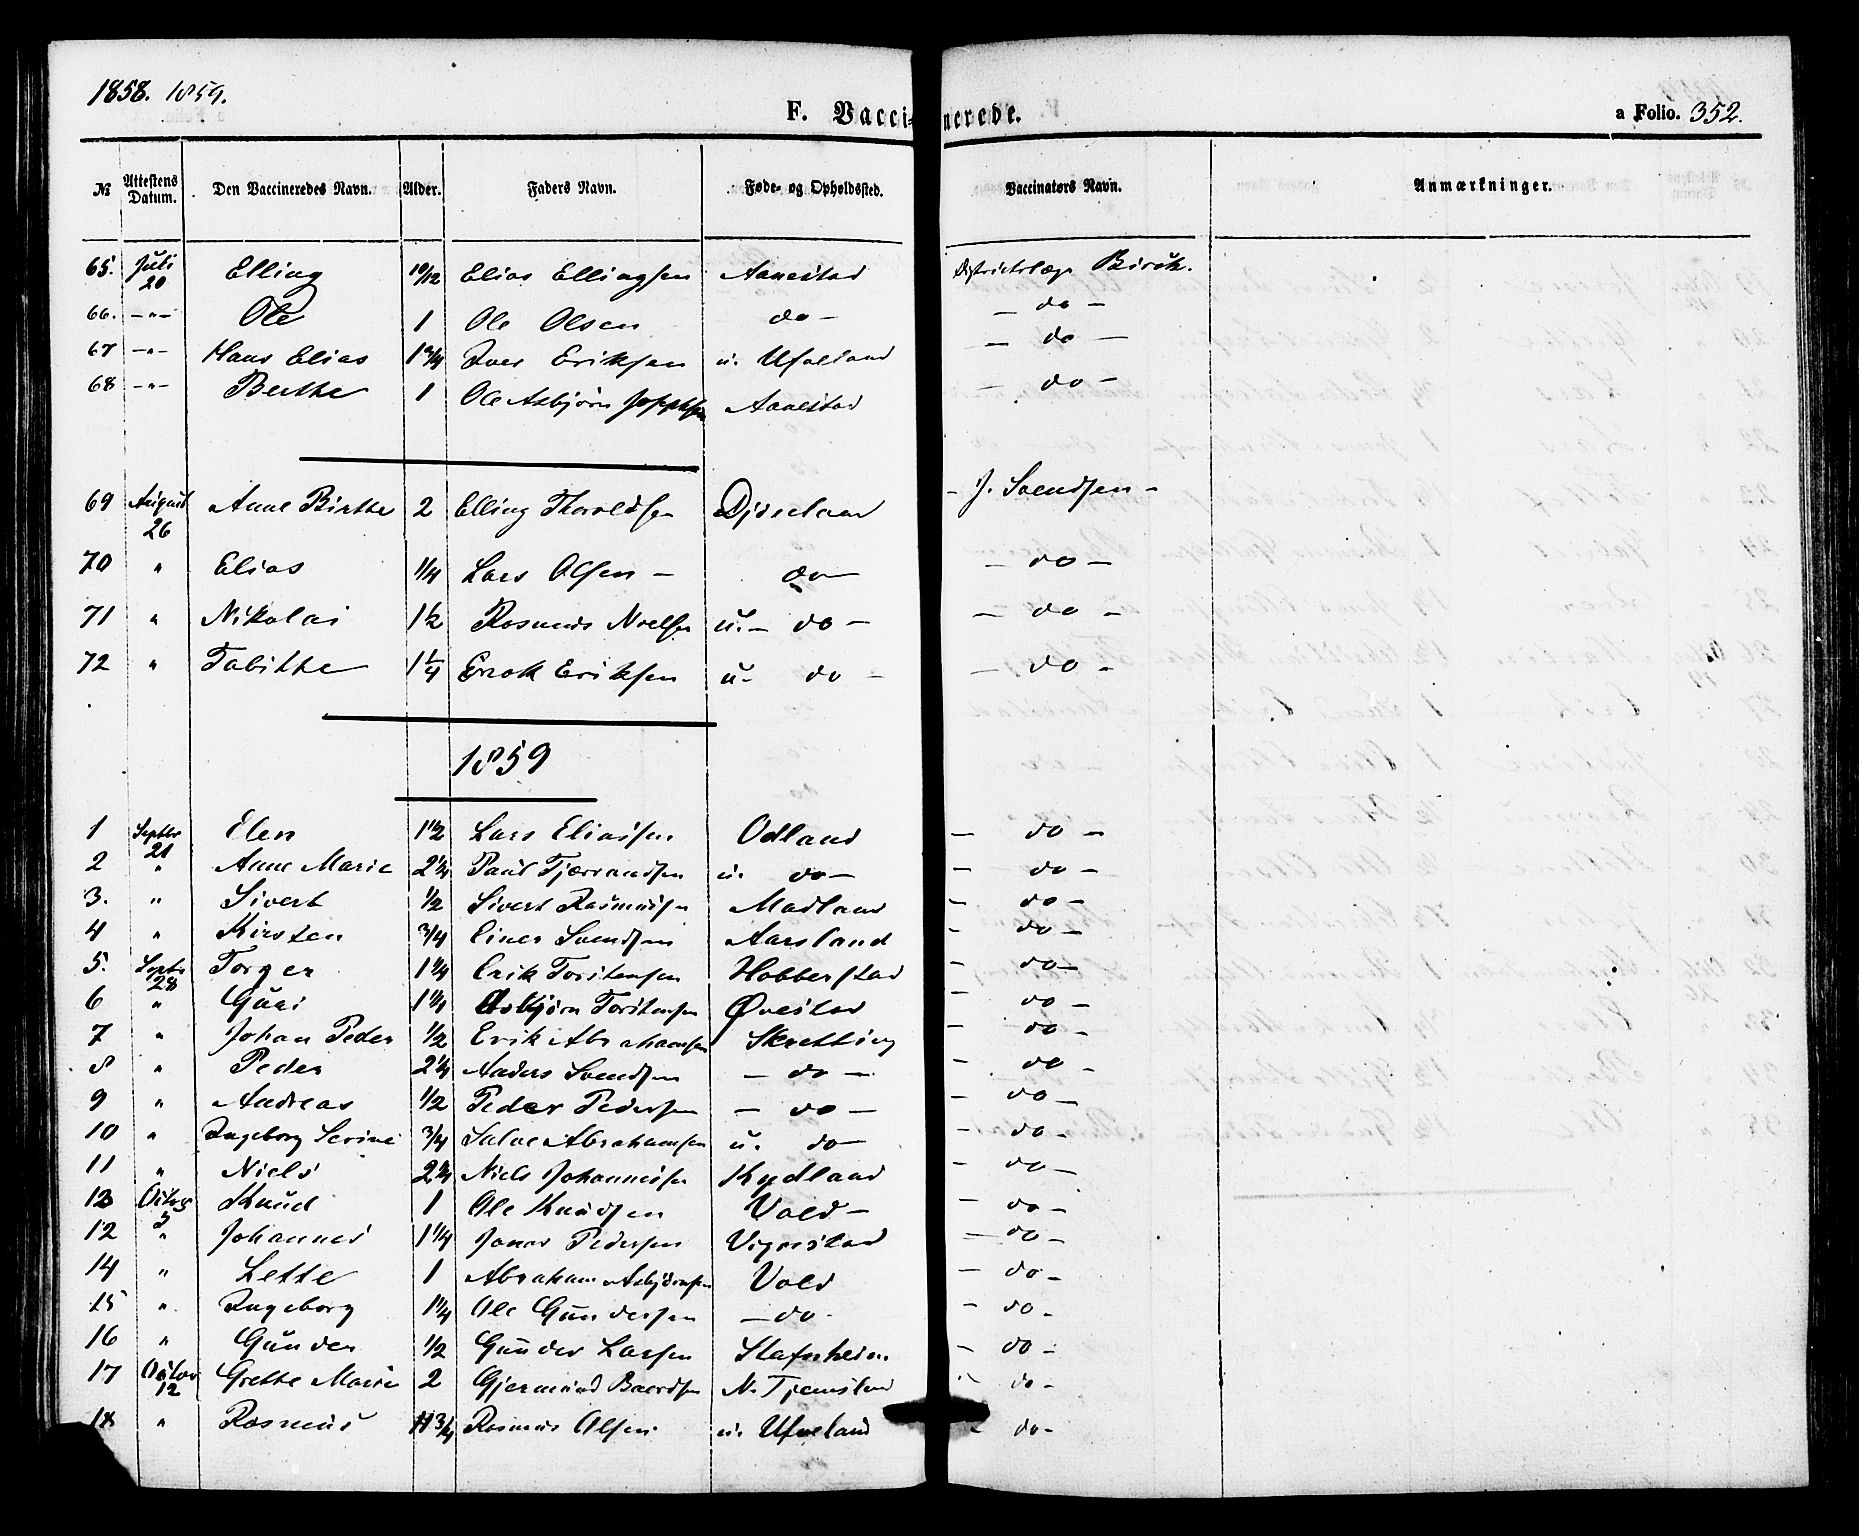 1858. 1859.
F. Vaccinerede.
a Folio. 352.
№ Attestens Datum. Den Vaccineredes Navn. Alder. Faders Navn. Føde- og Opholdssted. Vaccinators Navn. Anmærkninger.
65. Juli 20 Elling 10/12 Elias Ellingsen Aanestad Districtslæge Birch.
66. -"- Ole 1 Ole Olsen do - - do -
67 -"- Hans Elias 1 3/4 Iver Eriksen u. Ueland - do -
68 -"- Berthe 1 Ole Asbjørn Aanestad - do -
69 August 26 Anne Birthe 2 Elling Thoroldsen - J. Svendsen -
70 " Elias 1/4 Lars Olsen - do - - do -
71 " Nikolai 1 1/2 Rasmus u. - do - - do -
72 " Tabithe 1 1/4 Enok Eriksen u. do - - do -
1859
1 Septbr 21 Elen 1 1/2 Lars Eliassen Odland - do -
2 " Anne Marie 2 1/4 Paul Tjærrandsen u. do - - do -
3. " Sivert 1/2 Sivert Rasmussen Madland - do -
4 " Kirsten 3/4 Einer Svendsen Aarsland - do -
5. Septb 28 Torger 1 1/4 Erik Torstensen Hobberstad - do -
6 " Guri 1 1/4 Asbjørn Torstensen Øvestad - do -
7 " Johan Peder 1/2 Erik Abrahamsen Skretting - do -
8 " Peder 2 1/4 Anders Svendsen - do - - do -
9 " Andreas 1/2 Peder Pedersen - do - - do -
10 " Ingeborg Serine 3/4 Salve Abrahamsen u. do - - do -
11 " Niels 2 1/4 Niels Johannessen Kydland - do -
13 Octbr 5 Knud 1 Ole Knudsen Vold - - do -
12 " Johannes 1 1/4 Jonas Pedersen Vigrestad - do -
14 " Lette 1 Abraham Asbjørnsen Vold - do -
15 " Ingeborg 1 1/4 Ole Gundersen - do - - do -
16 " Gunder 1/2 Gunder Larsen Stafnheim - do -
17 Octbr 12 Grethe Marie 2 Gjermund Baerdsen N. Tjemsland - do -
18 " Rasmus 3/4 Rasmus Olsen u. Ueland - do -